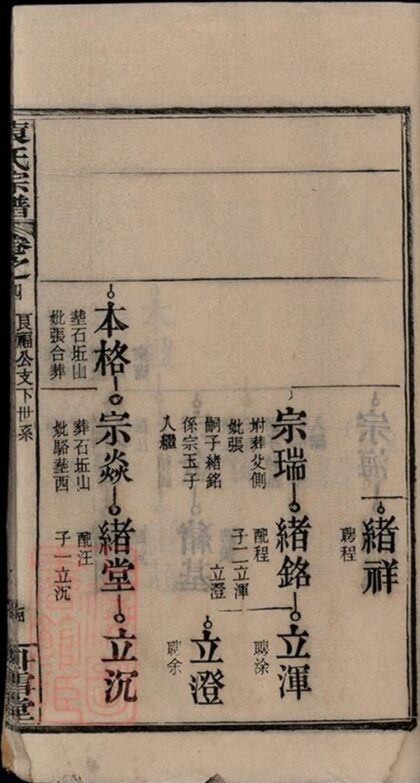 緒祥
聘程
宗瑞
祔葬父側
妣張
嗣子緒銘
係宗玉子
入繼
緒銘
配程
子二立渾
立澄
立渾
聘涂
立澄
聘余
本格
塟石坵山
妣張合葬
宗焱
葬石坵山
妣駱塟西
緒堂
配汪
子一立沉
立沉
袁氏宗譜
卷之四
良福公支下世系
臥雪堂